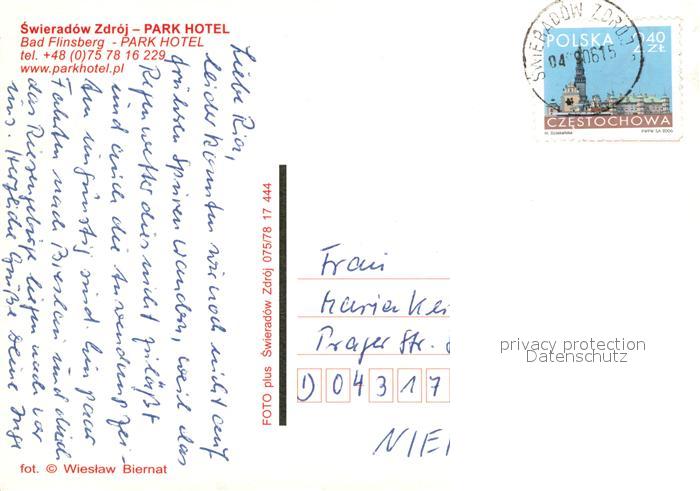 Świeradów Zdrój – PARK HOTEL
Bad Flinsberg - PARK HOTEL
tel. +48 (0)75 78 16 229
www.parkhotel.pl
Liebe Ria,
leider konnten wir noch nicht auf
früheren Spuren wandern, weil das
Regenwetter dies nicht zuläßt
und auch die Anwendungszei-
ten ungünstig sind. Ein paar
Fahrten nach Breslau und durch
das Riesengebirge liegen noch vor
uns. Herzliche Grüße Deine Inge
fot. © Wiesław Biernat
FOTO plus Świeradów Zdrój 075/78 17 444
ŚWIERADÓW ZDRÓJ
POLSKA
2,40
ZŁ
CZĘSTOCHOWA
PWPW SA 2006
Frau
Maria
Prager Str.
D 04317
privacy protection
Datenschutz